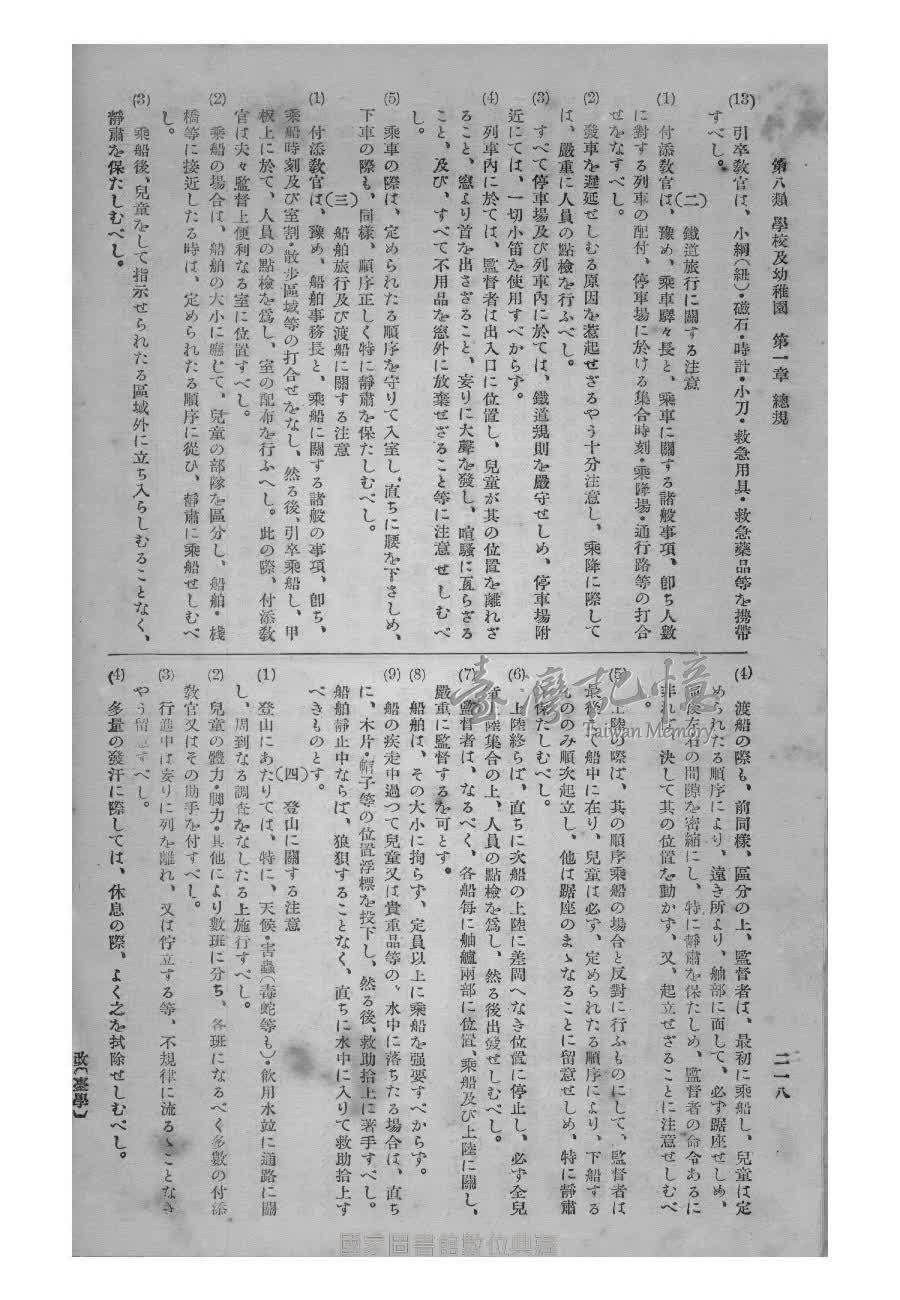 第八類 學校及幼稚園 第一章 總規
二一八
(13) 引卒教官は、小綱(紐)・磁石・時計・小刀・救急用具・救急藥品等を携帶
すべし。
(二) 鐵道旅行に關する注意
(1) 付添教官は、豫め、乘車驛々長と、乘車に關する諸般事項、卽ち人數
に對する列車の配付、停車場に於ける集合時刻・乘降場・通行路等の打合
せをなすべし。
(2) 發車を遲延せしむる原因を惹起せざるやう十分注意し、乘降に際して
は、嚴重に人員の點檢を行ふべし。
(3) すべて停車場及び列車內に於ては、鐵道規則を嚴守せしめ、停車場附
近にては、一切小笛を使用すべからず。
(4) 列車內に於ては、監督者は出入口に位置し、兒童が其の位置を離れざ
ること、窓より首を出さざること、妄りに大聲を發し、喧騷に亙らざる
こと、及び、すべて不用品を窓外に放棄せざること等に注意せしむべ
し。
(5) 乘車の際は、定められたる順序を守りて入室し、直ちに腰を下さしめ、
下車の際も、同樣、順序正しく特に靜肅を保たしむべし。
(三) 船舶旅行及び渡船に關する注意
(1) 付添教官は、豫め、船舶事務長と、乘船に關する諸般の事項、卽ち、
乘船時刻及び室割・散步區域等の打合せをなし、然る後、引卒乘船し、甲
板上に於て、人員の點檢を爲し、室の配布を行ふへし。此の際、付添教
官は夫々監督上便利なる室に位置すべし。
(2) 乘船の場合は、船舶の大小に應じて、兒童の部隊を區分し、船舶・棧
橋等に接近したる時は、定められたる順序に從ひ、靜肅に乘船せしむべ
し。
(3) 乘船後、兒童をして指示せられたる區域外に立ち入らしむることなく、
靜肅を保たしむべし。
(4) 渡船の際も、前同樣、區分の上、監督者は、最初に乘船し、兒童は定
められたる順序により、遠き所より、舳部に面して、必ず踞座せしめ、
前後左右の間隙を密縮にし、特に靜肅を保たしめ、監督者の命令あるに
非れば、決して其の位置を動かず、又、起立せざることに注意せしむべ
し。
(5) 上陸の際は、其の順序乘船の場合と反對に行ふものにして、監督者は
最終まで船中に在り、兒童は必ず、定められたる順序により、下船する
もののみ順次起立し、他は踞座のまゝなることに留意せしめ、特に靜肅
を保たしむべし。
(6) 上陸終らば、直ちに次船の上陸に差閊へなき位置に停止し、必ず全兒
童上陸集合の上、人員の點檢を爲し、然る後出發せしむべし。
(7) 監督者は、なるべく、各船每に舳艫兩部に位置、乘船及び上陸に關し、
嚴重に監督するを可とす。
(8) 船舶は、その大小に拘らず、定員以上に乘船を强要すべからず。
(9) 船の疾走中過つて兒童又は貴重品等の、水中に落ちたる場合は、直ち
に、木片・帽子等の位置浮標を投下し、然る後、救助拾上に著手すべし。
船舶靜止中ならば、狼狽することなく、直ちに水中に入りて救助拾上す
べきものとす。
(四) 登山に關する注意
(1) 登山にあたりては、特に、天候・害蟲(毒蛇等も)・飮用水竝に通路に關
し、周到なる調査をなしたる上施行すべし。
(2) 兒童の體力・脚力・其他により數班に分ち、各班になるべく多數の付添
教官又はその助手を付すべし。
(3) 行進中は妄りに列を離れ、又は佇立する等、不規律に流るゝことなき
やう留意すべし。
(4) 多量の發汗に際しては、休息の際、よく之を拭除せしむべし。
改〔臺學〕
臺灣記憶
Taiwan Memory
國家圖書館數位典藏